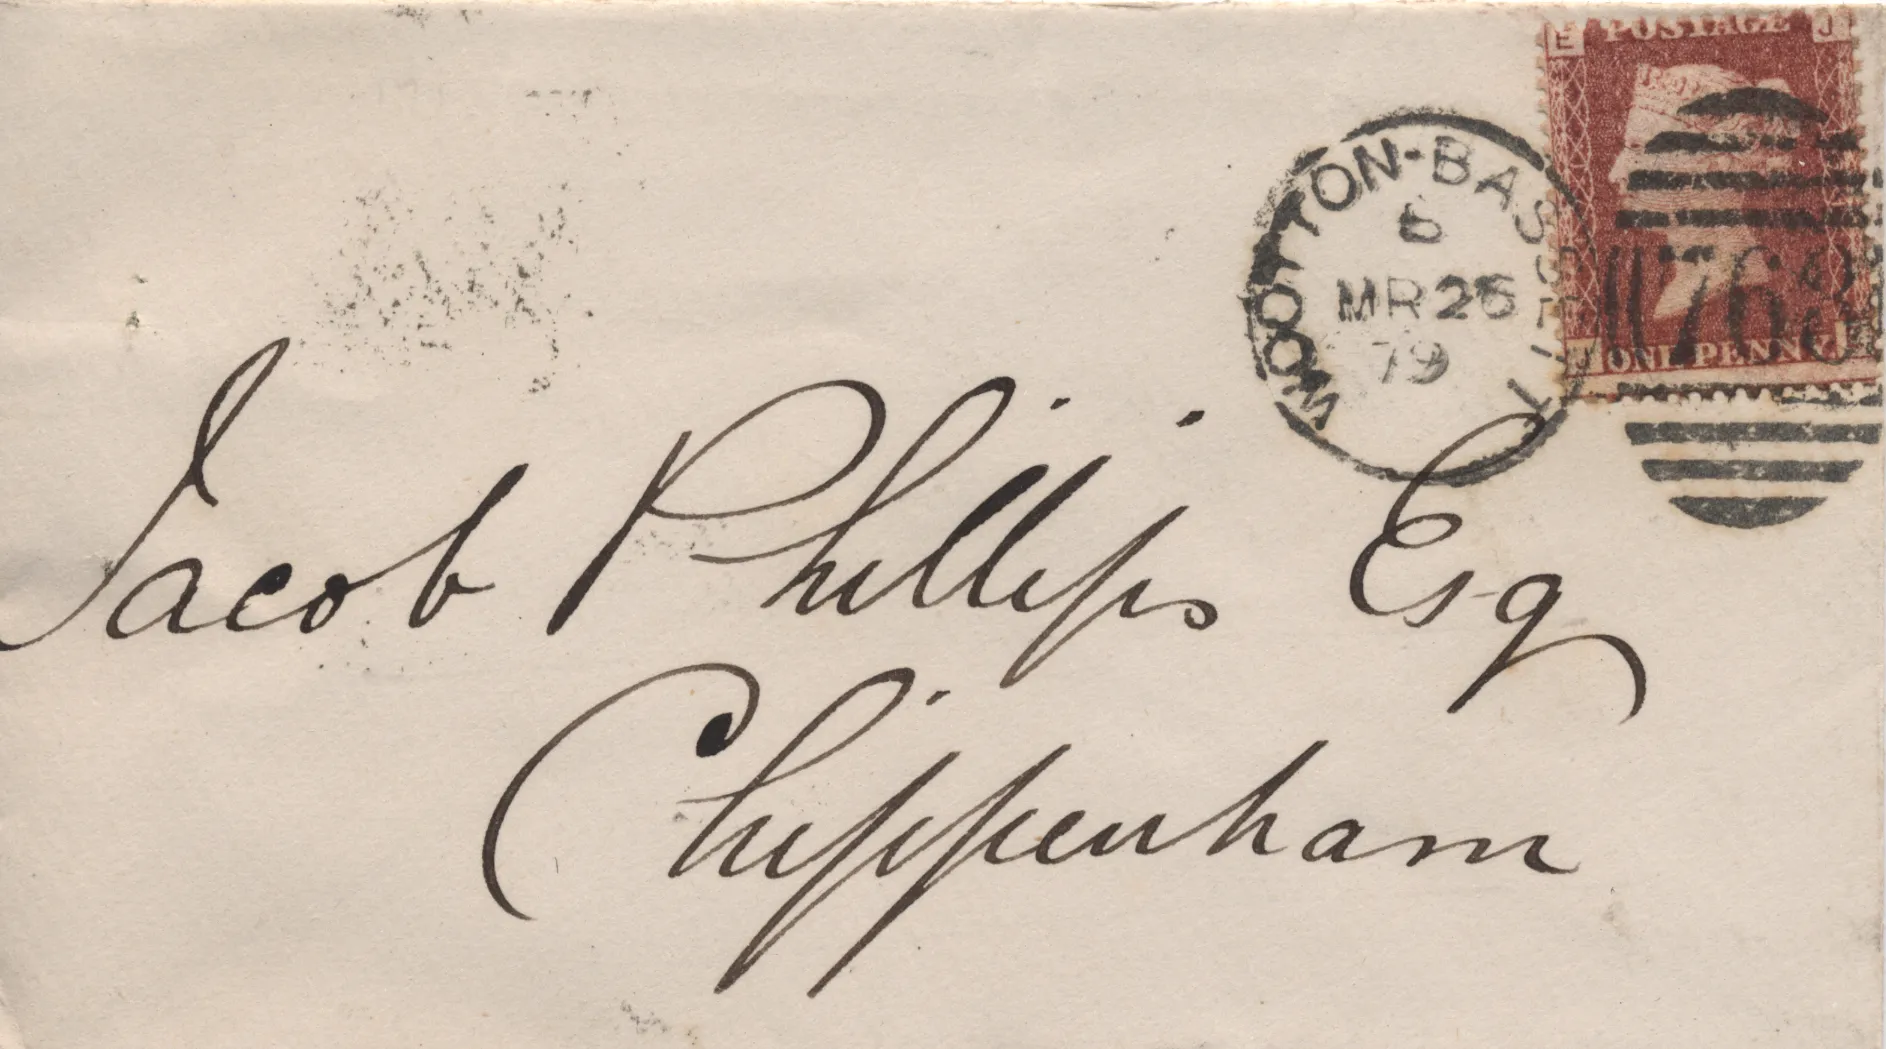 E POSTAGE J
WOOTTON-BASSETT
MR 26
79
ONE PENNY
Jacob Phillips Esq
Chippenham